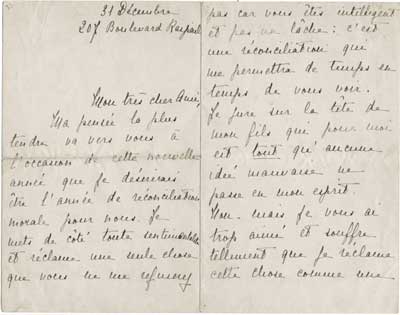 31 Décembre
207 Boulevard Raspail
Mon très cher Ami,
Ma pensée la plus
tendre va vers vous à
l'occasion de cette nouvelle
année que je désirerais
être l'année de réconciliation
morale pour nous. Je
mets de côté toute sentimentalité
et réclame une seule chose
que vous ne me refuserez
pas car vous êtes intelligent
et pas un lâche : c'est
une réconciliation qui
me permettra de temps en
temps de vous voir.
Je jure sur la tête de
mon fils qui pour moi
est tout qu'aucune
idée mauvaise ne
passe en mon esprit.
Non. mais je vous ai
trop aimé et souffre
tellement que je réclame
cette chose comme une